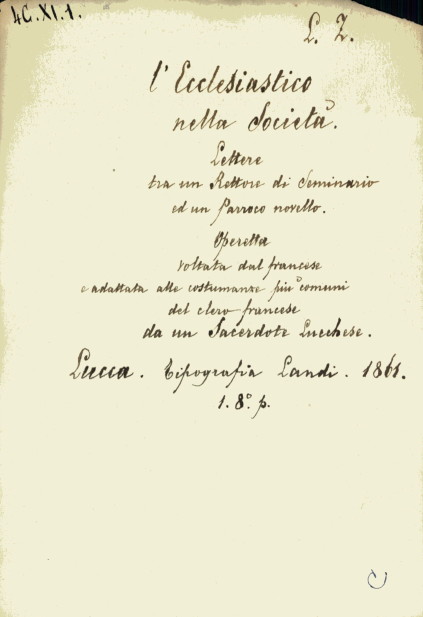 4C.XI.1.
L. Z.
l'Ecclesiastico
nella Società.
Lettere
tra un Rettore di Seminario
ed un Parroco novello.
Operetta
voltata dal francese
e adattata alle costumanze più comuni
del clero francese
da un Sacerdote Lucchese.
Lucca. Tipografia Landi. 1861.
1. 8.° p.